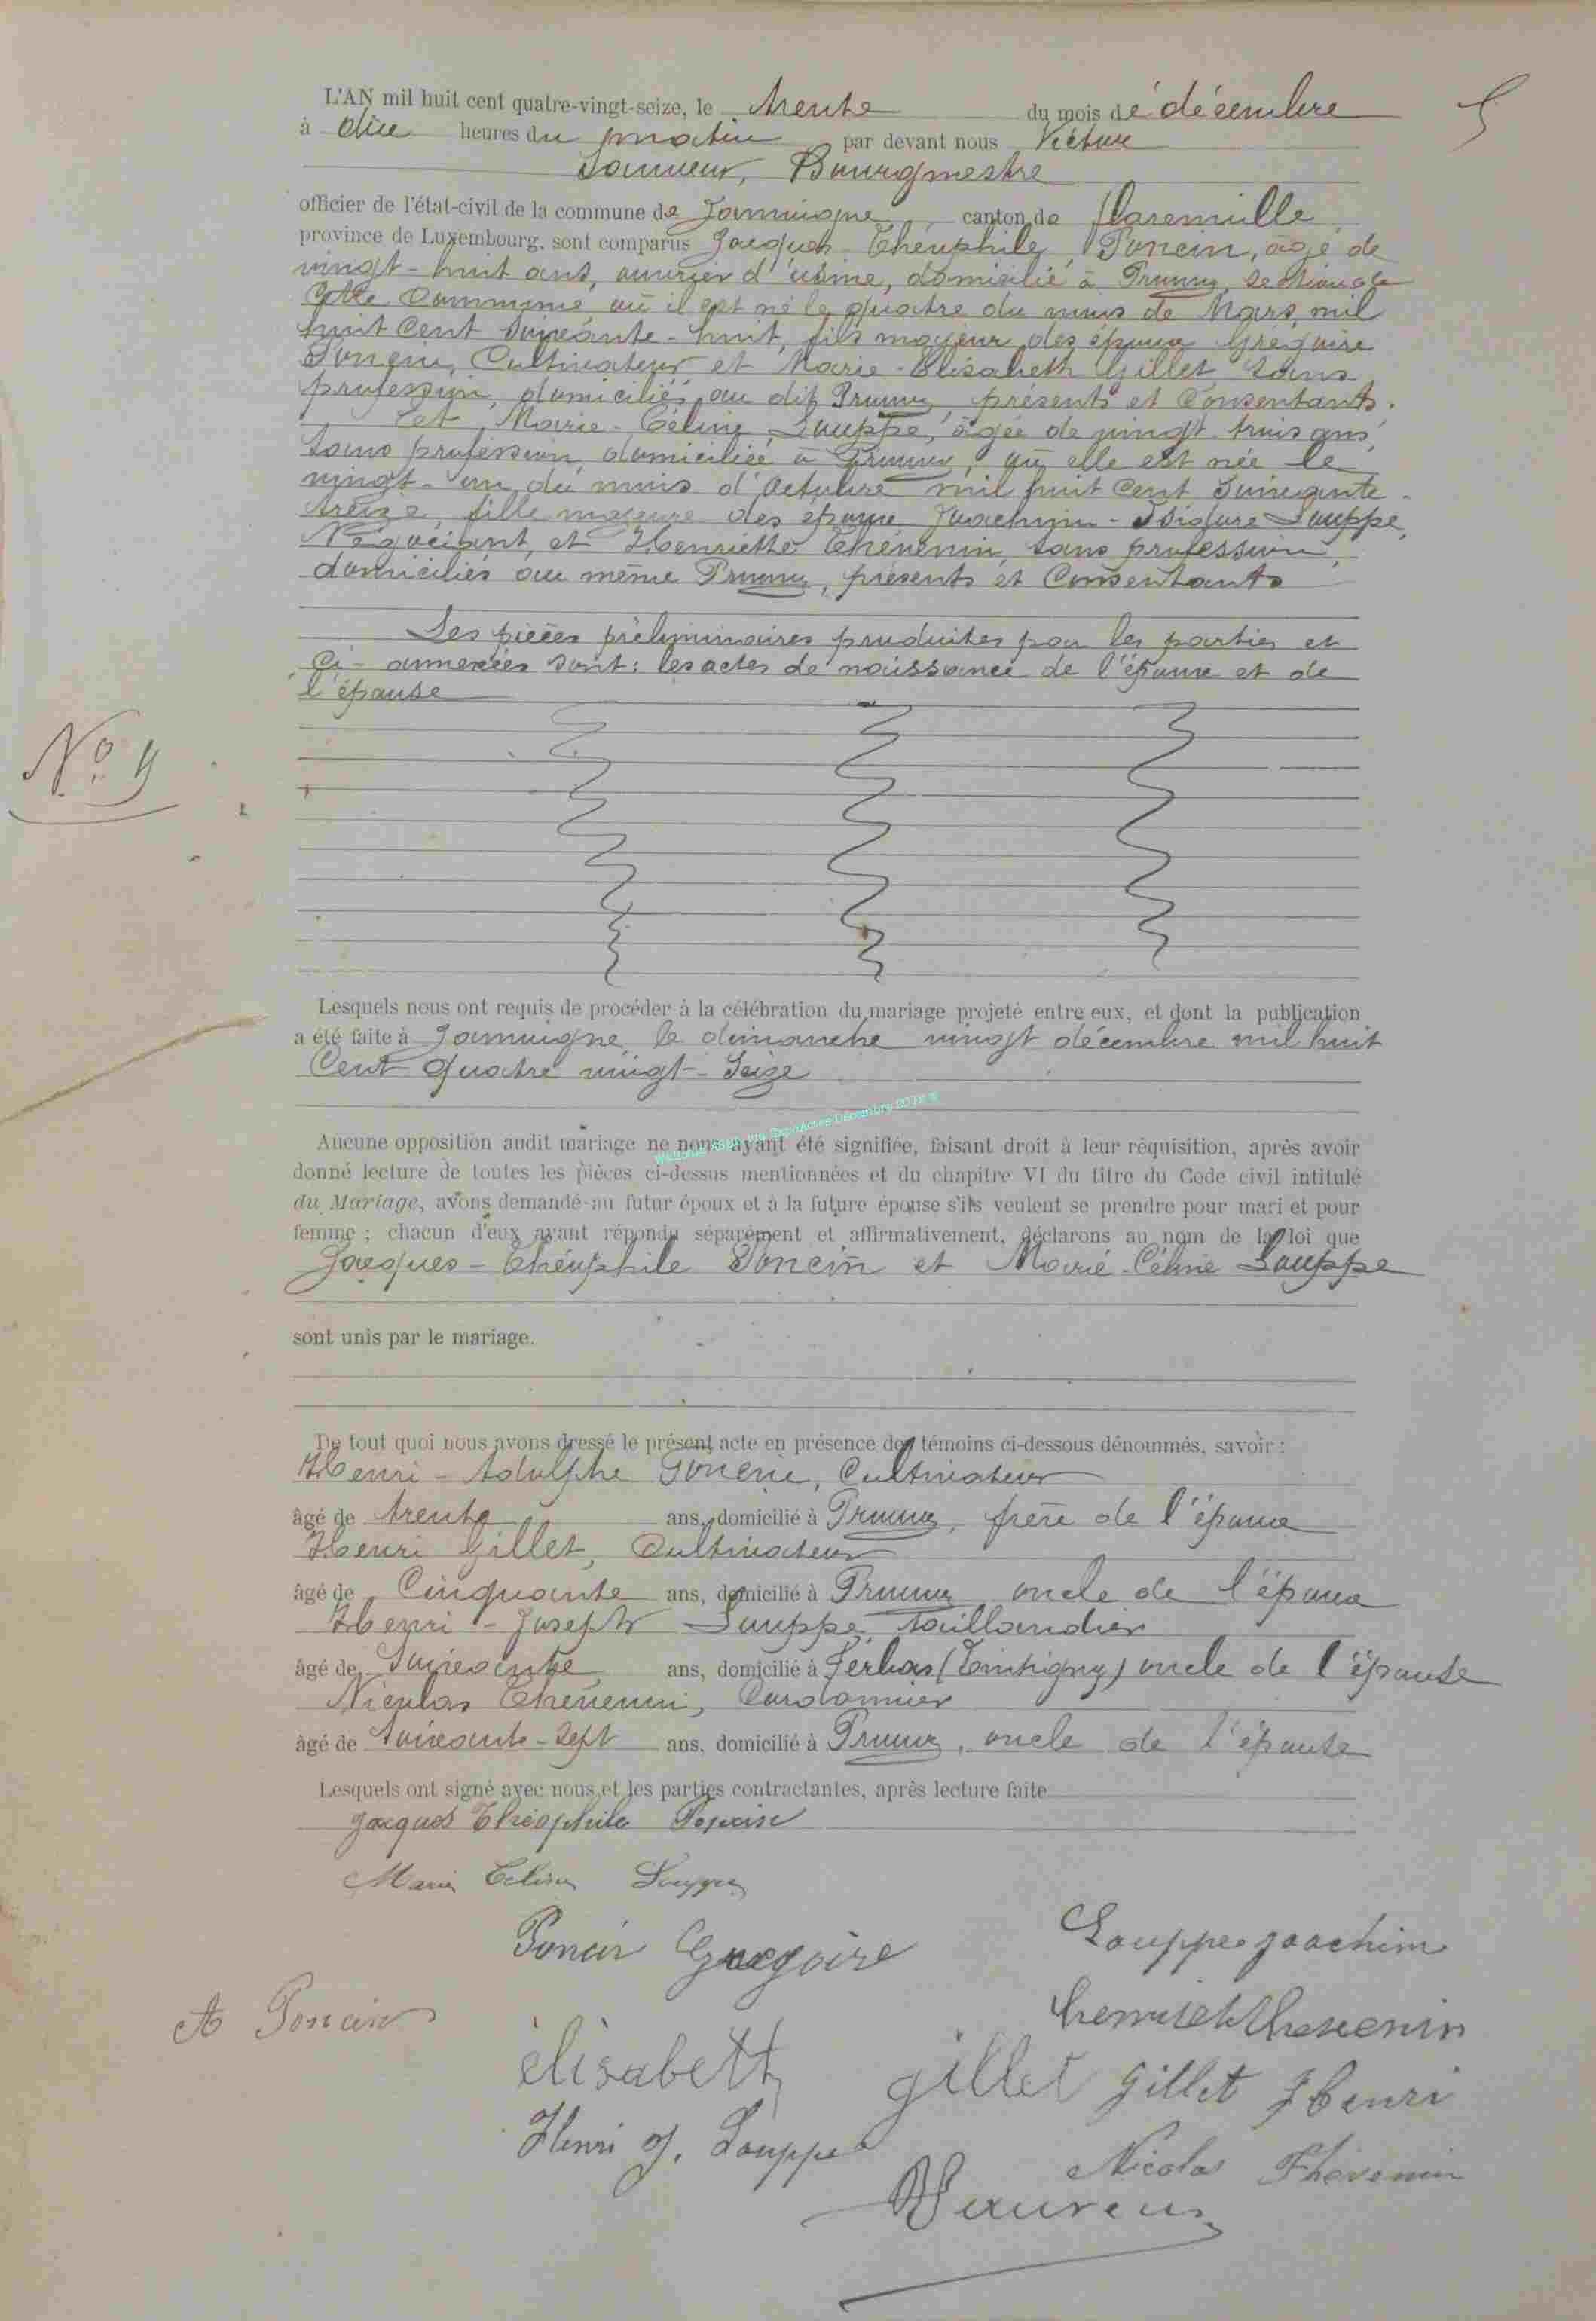 L'AN mil huit cent quatre-vingt-seize, le trente du mois de décembre
à dix heures du matin par devant nous Victor
Sauveur, Bourgmestre
officier de l'état-civil de la commune de Jamoigne, canton de Florenville
province de Luxembourg, sont comparus Jacques Théophile Poncin, âgé de
vingt-huit ans, ouvrier d'usine, domicilié à Prouvy, section de
cette Commune, où il est né le quatre du mois de Mars, mil
huit Cent soixante-huit, fils majeur des époux Grégoire
Poncin, Cultivateur et Marie-Elisabeth Gillet sans
profession, domiciliés au dit Prouvy, présents et Consentants.
Et Marie-Céline Louppe, âgée de vingt-trois ans,
sans profession, domiciliée à Prouvy, où elle est née le
vingt-un du mois d'Octobre mil huit Cent soixante-
treize, fille majeure des époux Joachim-Isidore Louppe,
Négociant, et Henriette Thévenin, sans profession,
domiciliés au même Prouvy, présents et Consentants
Les pièces préliminaires produites par les parties et
Ci-annexées sont: les actes de naissance de l'époux et de
l'épouse
No 9
Lesquels nous ont requis de procéder à la célébration du mariage projeté entre eux, et dont la publication
a été faite à Jamoigne le dimanche vingt décembre mil huit
Cent quatre vingt-Seize
Aucune opposition audit mariage ne nous ayant été signifiée, faisant droit à leur réquisition, après avoir
donné lecture de toutes les pièces ci-dessus mentionnées et du chapitre VI du titre du Code civil intitulé
du Mariage, avons demandé au futur époux et à la future épouse s'ils veulent se prendre pour mari et pour
femme ; chacun d'eux ayant répondu séparément et affirmativement, déclarons au nom de la loi que
Jacques-Théophile Poncin et Marie-Céline Louppe
sont unis par le mariage.
De tout quoi nous avons dressé le présent acte en présence des témoins ci-dessous dénommés, savoir :
Henri-Adolphe Poncin, Cultivateur
âgé de trente ans, domicilié à Prouvy, frère de l'époux
Henri Gillet, Cultivateur
âgé de Cinquante ans, domicilié à Prouvy oncle de l'époux
Henri-Joseph Louppe, taillandier
âgé de Soixante ans, domicilié à (Tintigny) oncle de l'épouse
Nicolas Thévenin, Cordonnier
âgé de soixante-sept ans, domicilié à Prouvy, oncle de l'épouse
Lesquels ont signé avec nous et les parties contractantes, après lecture faite
Jacques Théophile Poncin
Marie Celina Louppe
Poncin Gregoire Louppe Joachim
A Poncin henriette thevenin
élisabeth gillet gillet Henri
Henri J. Louppe Nicolas Thevenin
VSauveur